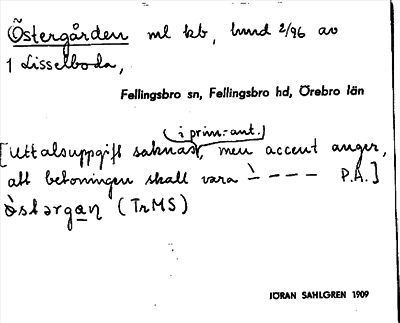 Östergården ml kb, lund 2/96 av
1 Lisselboda,
Fellingsbro sn, Fellingsbro hd, Örebro län
(i prim.-ant.)
[Uttalsuppgift saknas, men accent anger,
att betoningen skall vara ̀ – – – – P.A.]
ò̀stərgaɳ (TrMS)
JÖRAN SAHLGREN 1909